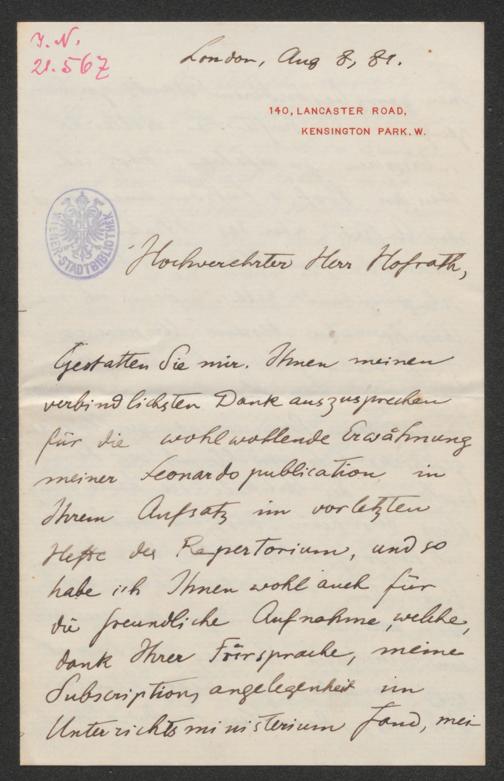 I. N.
21.567
London, Aug 8, 81.
140, LANCASTER ROAD,
KENSINGTON PARK. W.
WIENER-STADTBIBLIOTHEK
Hochverehrter Herr Hofrath,
Gestatten Sie mir. Ihnen meinen
verbindlichsten Dank auszusprechen
für die wohlwollende Erwähnung
meiner Leonardopublication in
Ihrem Aufsatz im vorletzten
Hefte des Repertorium, und so
habe ich Ihnen wohl auch für
die freundliche Aufnahme, welche,
dank Ihrer Fürsprache, meine
Subscriptionsangelegenheit im
Unterrichtsministerium fand, mei